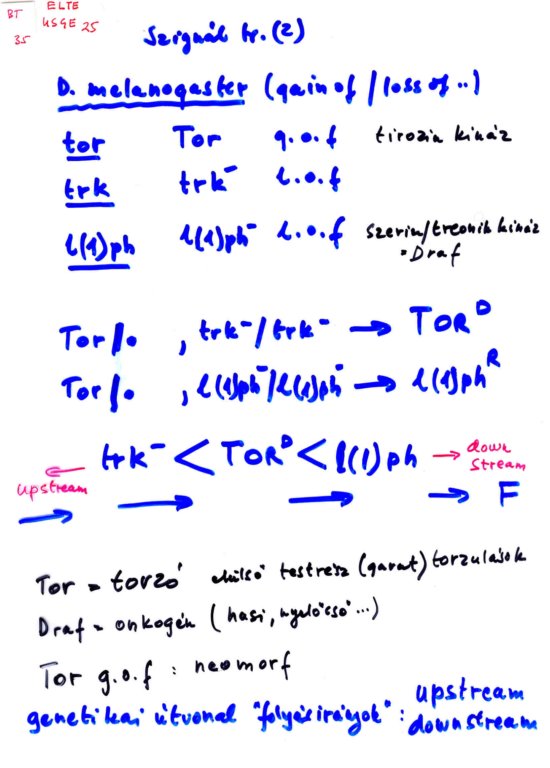 BT ELTE
35 USGE 25
Szignál tr. (2)
D. melanogaster (gain of / loss of ..)
tor Tor g.o.f tirozin kináz
trk trk⁻ l.o.f
l(1)ph l(1)ph⁻ l.o.f szerin/treonin kináz
• Draf
Tor/o , trk⁻/trk⁻ → TORᴰ
Tor/o , l(1)ph⁻/l(1)ph⁻ → l(1)phᴿ
← trk⁻ < TORᴰ < l(1)ph → down stream
upstream
→ → → → F
Tor = torzó testrész (garat) torzulások
Draf = onkogén (hasi, nyelőcső ...)
Tor g.o.f : neomorf
genetikai útvonal "folyásirányok" : upstream
downstream